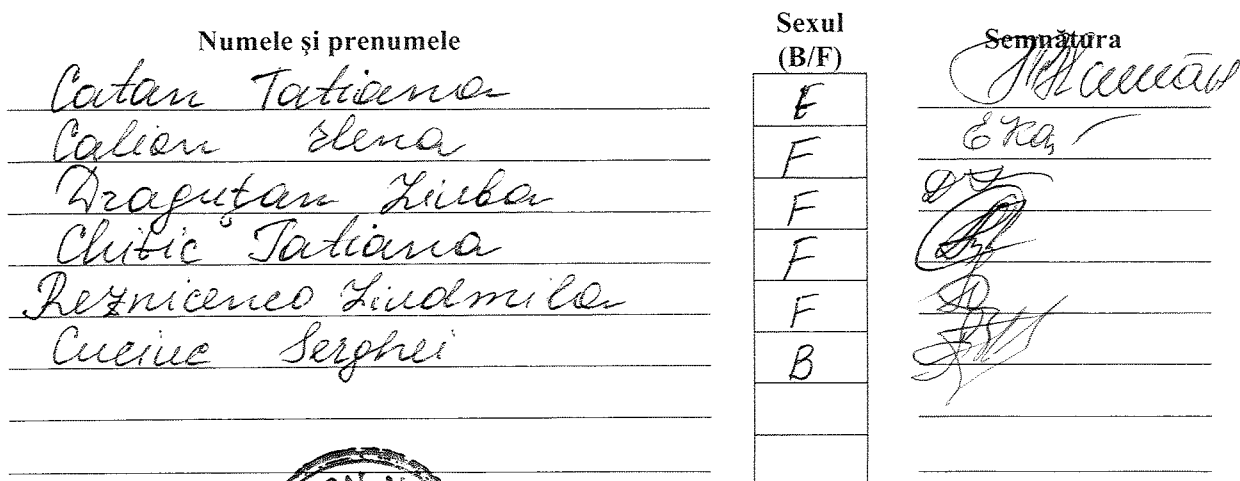 Numele și prenumele Sexul (B/F) Semnătura
Catan Tatiana F
Calion Elena F
Draguțan Liuba F
Chibic Tatiana F
Reznicenco Liudmila F
Cuciuc Serghei B